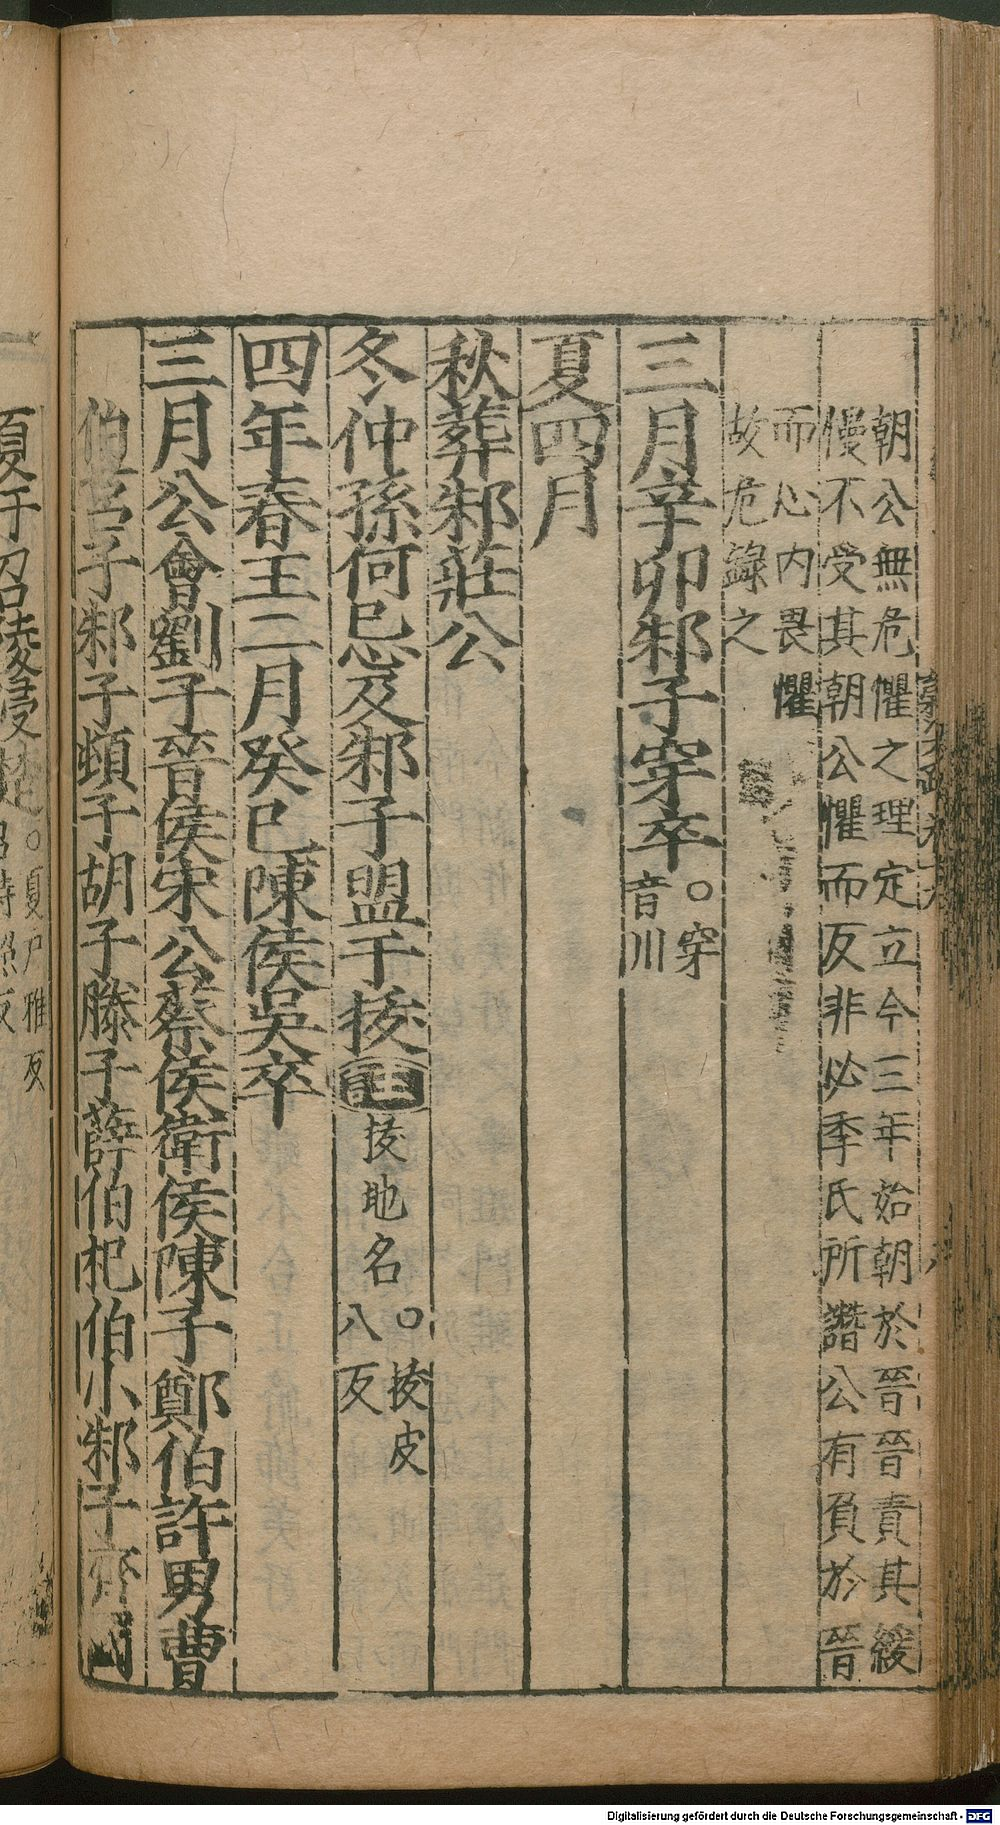 朝公無危懼之理定立今三年始朝於晉晉責其緩
慢不受其朝公懼而反非必季氏所譖公有負於晉
而心內畏懼
故危錄之
三月辛卯邾子穿卒○穿音川
夏四月
秋葬邾莊公
冬仲孫何忌及邾子盟于拔註拔地名○拔皮八反
四年春王二月癸巳陳侯吳卒
三月公會劉子晉侯宋公蔡侯衛侯陳子鄭伯許男曹
伯莒子邾子頓子胡子滕子薛伯杞伯小邾子齊國
夏于召陵侵楚○夏戶雅反召時照反
Digitalisierung gefördert durch die Deutsche Forschungsgemeinschaft - DFG